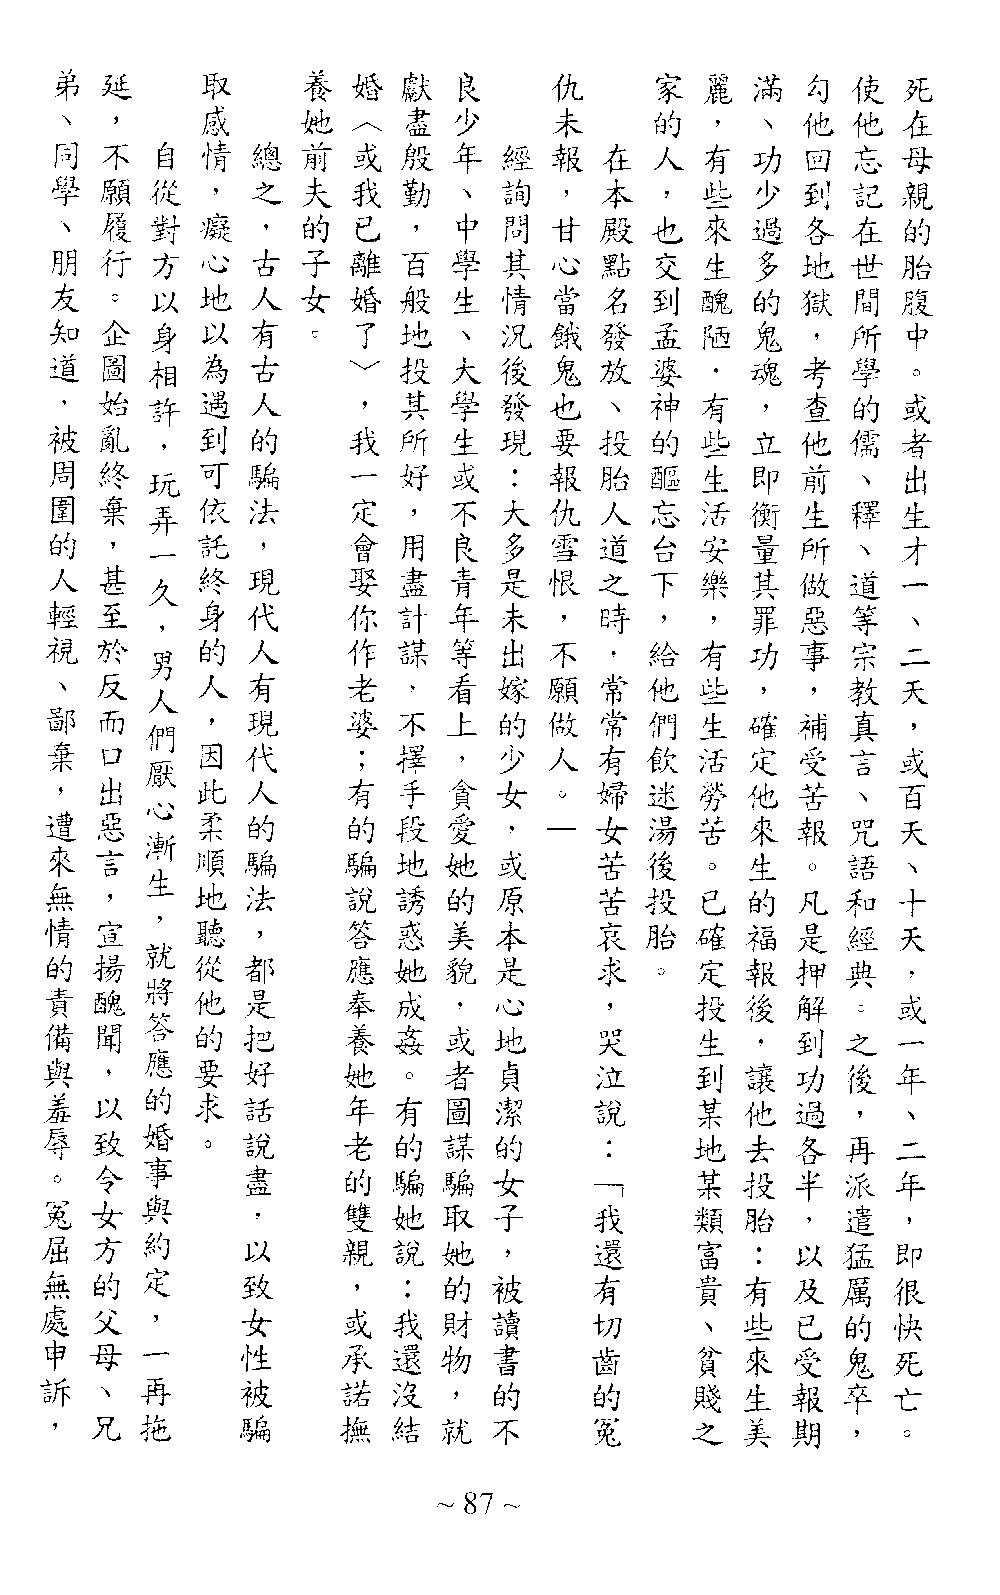 死在母親的胎腹中。或者出生才一、二天，或百天、十天，或一年、二年，即很快死亡。
使他忘記在世間所學的儒、釋、道等宗教真言、咒語和經典。之後，再派遣猛厲的鬼卒，
勾他回到各地獄，考查他前生所做惡事，補受苦報。凡是押解到功過各半，以及已受報期
滿、功少過多的鬼魂，立即衡量其罪功，確定他來生的福報後，讓他去投胎：有些來生美
麗，有些來生醜陋，有些生活安樂，有些生活勞苦。已確定投生到某地某類富貴、貧賤之
家的人，也交到孟婆神的醧忘台下，給他們飲迷湯後投胎。
在本殿點名發放、投胎人道之時，常常有婦女苦苦哀求，哭泣說：「我還有切齒的冤
仇未報，甘心當餓鬼也要報仇雪恨，不願做人。」
經詢問其情況後發現：大多是未出嫁的少女，或原本是心地貞潔的女子，被讀書的不
良少年、中學生、大學生或不良青年等看上，貪愛她的美貌，或者圖謀騙取她的財物，就
獻盡殷勤，百般地投其所好，用盡計謀，不擇手段地誘惑她成姦。有的騙她說：我還沒結
婚（或我已離婚了），我一定會娶你作老婆；有的騙說答應奉養她年老的雙親，或承諾撫
養她前夫的子女。
總之，古人有古人的騙法，現代人有現代人的騙法，都是把好話說盡，以致女性被騙
取感情，癡心地以為遇到可依託終身的人，因此柔順地聽從他的要求。
自從對方以身相許，玩弄一久，男人們厭心漸生，就將答應的婚事與約定，一再拖
延，不願履行。企圖始亂終棄，甚至於反而口出惡言，宣揚醜聞，以致令女方的父母、兄
弟、同學、朋友知道，被周圍的人輕視、鄙棄，遭來無情的責備與羞辱。冤屈無處申訴，
~ 87 ~